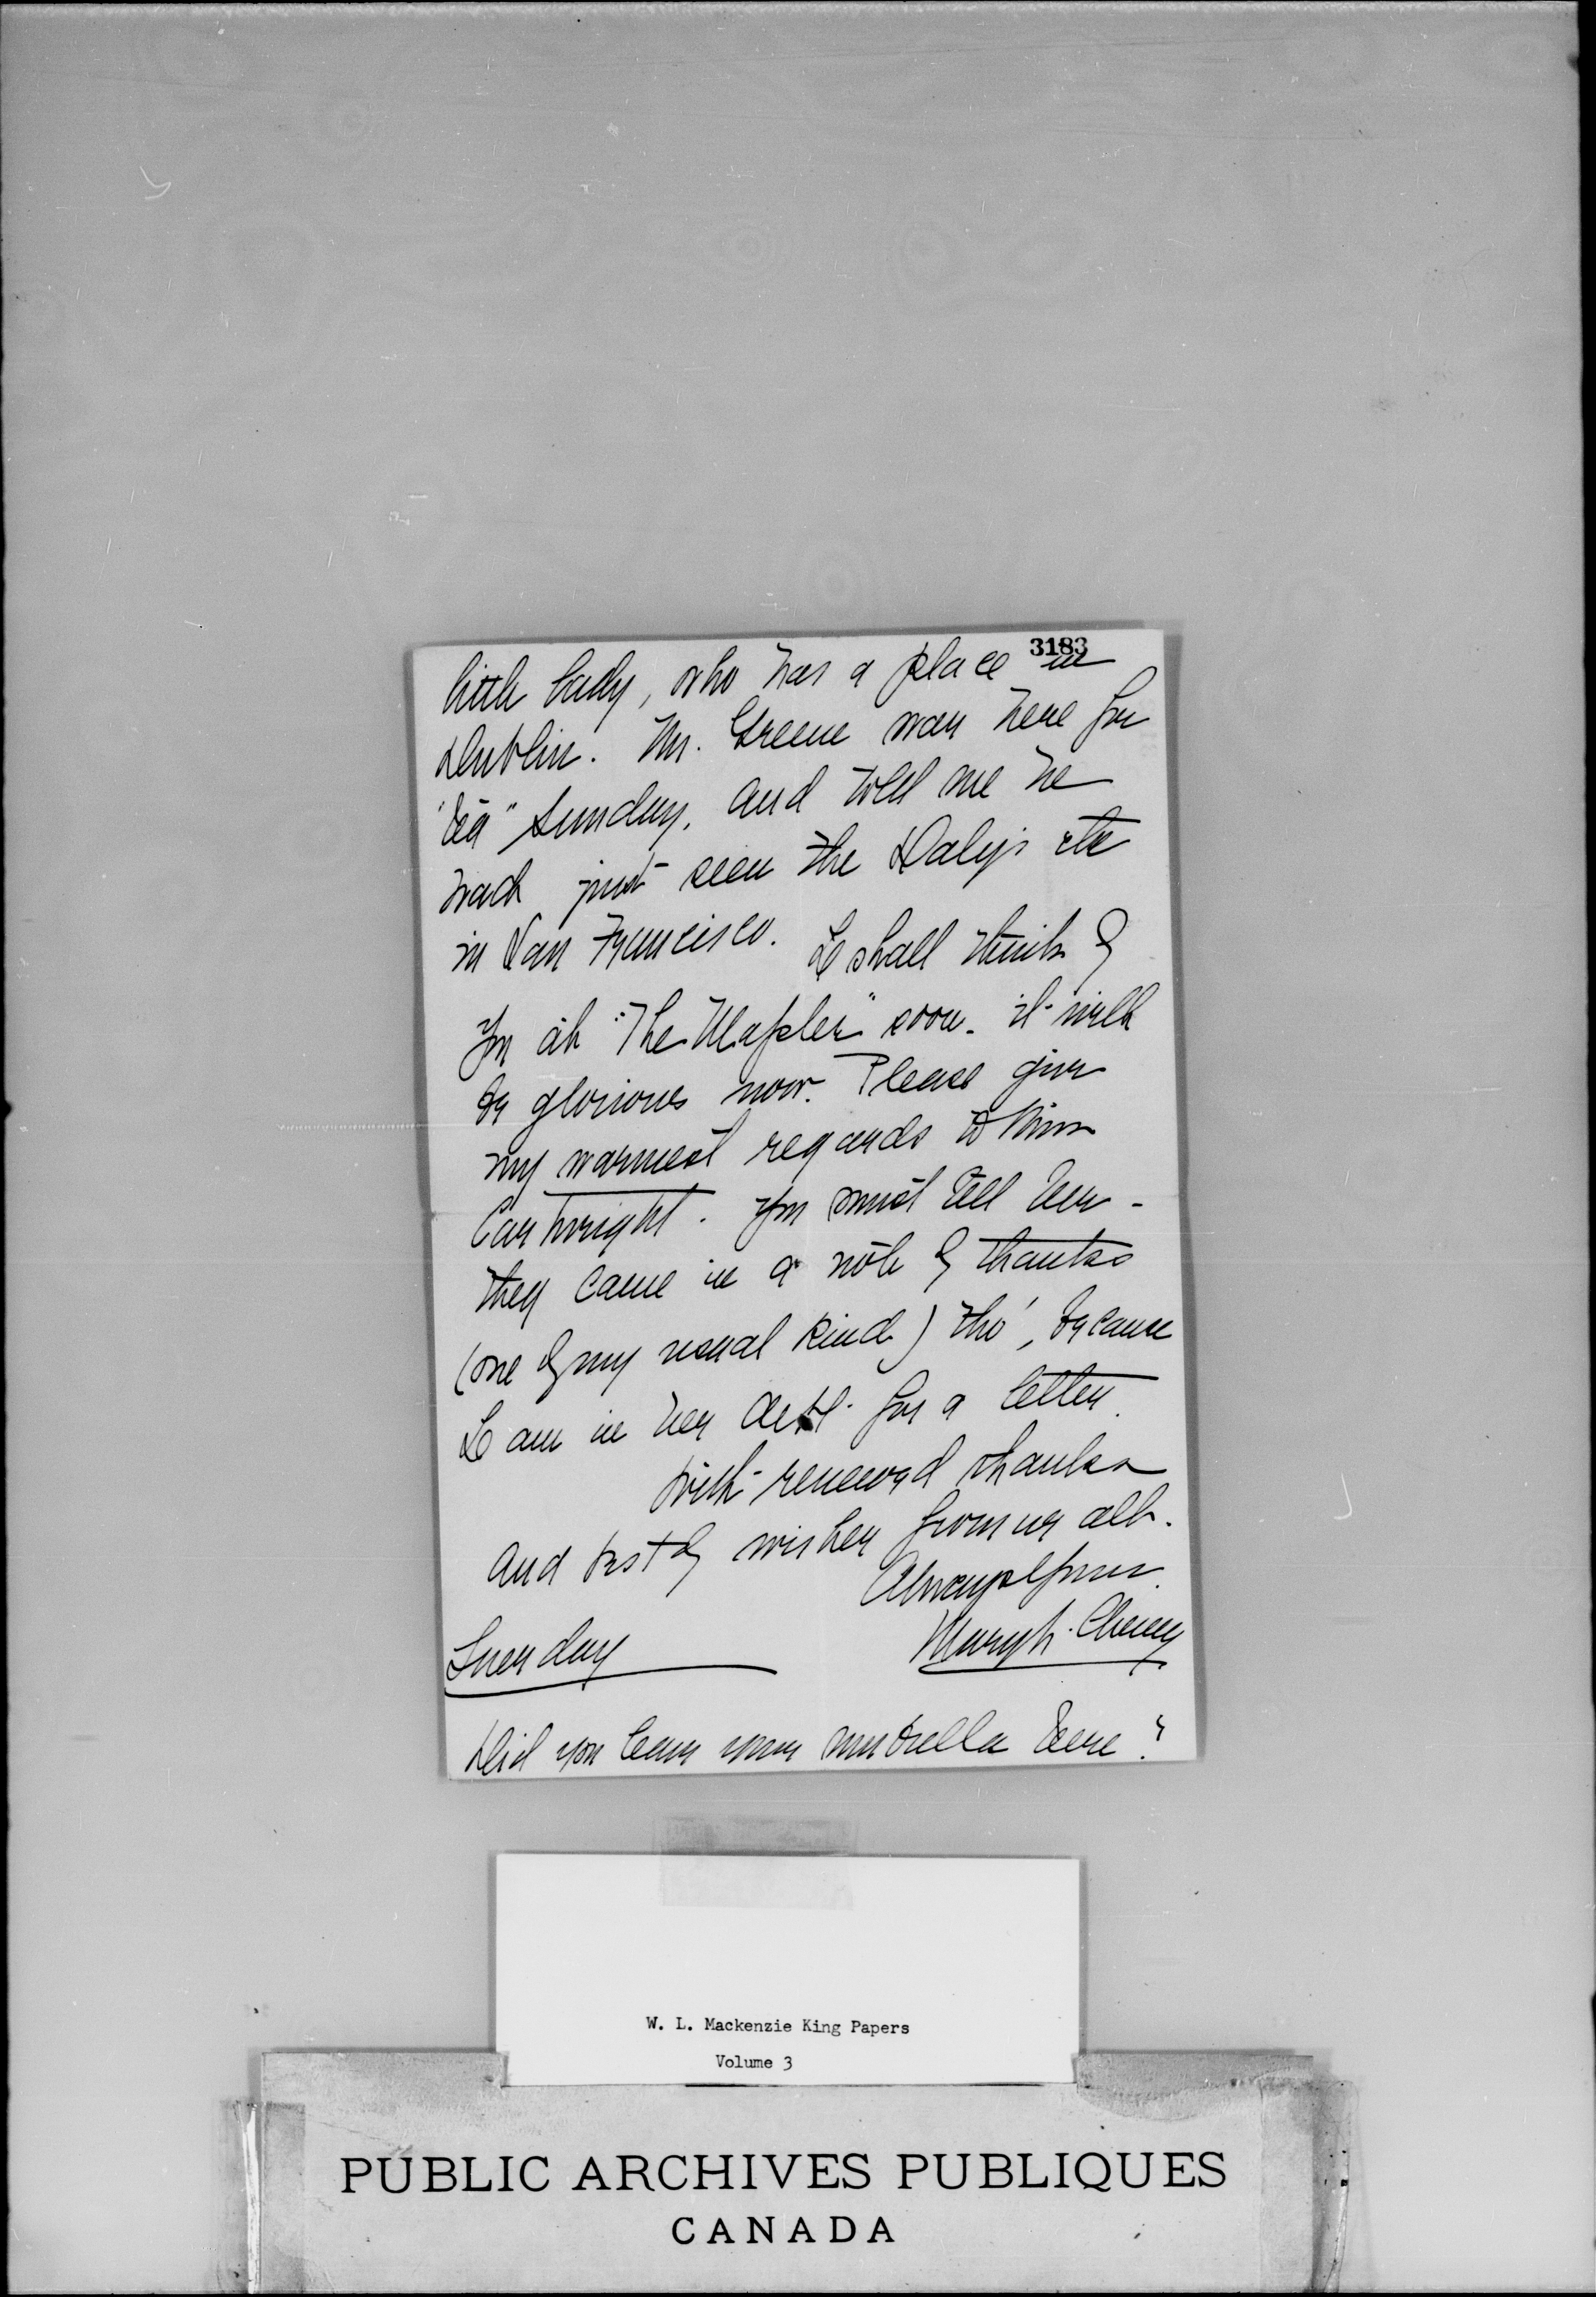 3183
little lady, who has a place in
Dublin. Mr. Greene was here for
"tea" Sunday, and told me he
had just seen the Dalys etc
in San Francisco. I shall think of
you at "The Maples" soon. it will
be glorious now. Please give
my warmest regards to Miss
Cartwright. You must tell her -
they came in a note of thanks
(one of my usual kind) tho', because
I am in her debt for a letter.
With renewed thanks
and best of wishes from us all.
Always yours
Mary L. Cheney
Tuesday
Did you leave your umbrella here?
W. L. Mackenzie King Papers
Volume 3
PUBLIC ARCHIVES PUBLIQUES
CANADA